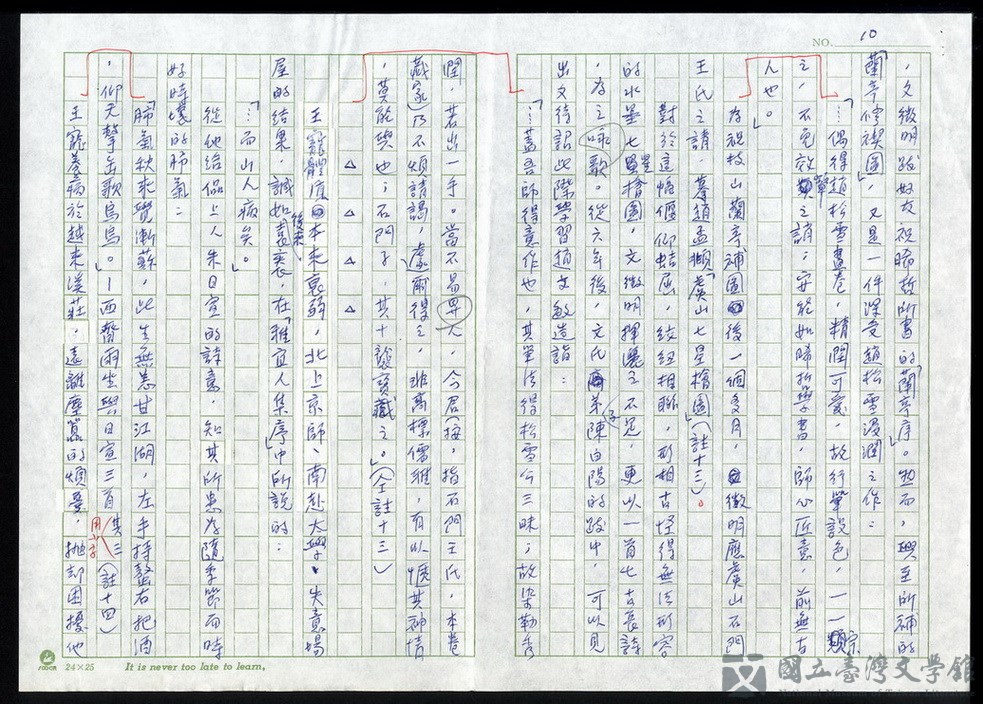 NO. 10
，文徵明跋好友祝晞哲所書的「蘭亭序」。想而，興至所補的
「蘭亭修禊圖」，又是一件深受趙松雪浸潤之作：
「…偶得趙松雪畫卷，精閒可愛，故行筆設色，一一宗
之，不免效顰之誚；安能如晞哲學書，師心匠意，前無古
人也」。
為祝枝山蘭亭補圖後一個多月，徵明應虞山石門
王氏之請，摹趙孟頫「虞山七星檜圖」（註十三）。
對於這幅偃仰蛄屈，絞紐相聯，形相古怪得無法形容
的水墨七星檜圖，文徵明揮灑之不足，更以一首七古長詩
，為之咏歌。從六年後，文氏弟子陳白陽的跋中，可以見
出文待詔此際學習趙文敏造詣：
「…蓋吾師得意作也，其筆法得松雪公三昧；故染勒秀
潤，若出一手。當不易畀人，今君（按，指石門王氏，本卷
藏家）乃不煩請謁，處爾得之，非高標儒雅，有以愜其神情
，莫能與也；石門子，其十襲寶藏之」。（仝註十三）
△ △ △ △
王寵體質本來衰弱，北上京師、南赴太學，失意場
屋的結果，誠如後來袁袠，在「雅宜人集序」中所說的：
「…而山人病矣」。
從他給侃上人朱日宣的詩意，知其所患為隨季節而時
好時壞的肺氣：
「肺氣秋來覺漸蘇，此生無恙甘江湖，左手持螯右把酒
，仰天擊缶歌烏烏」。—西齋雨坐與日宣三首其三（註十四）
用小字
王寵養病於越來溪莊，遠離塵囂的煩憂，拋卻困擾他
24×25 It is never too late to learn,
國立臺灣文學館